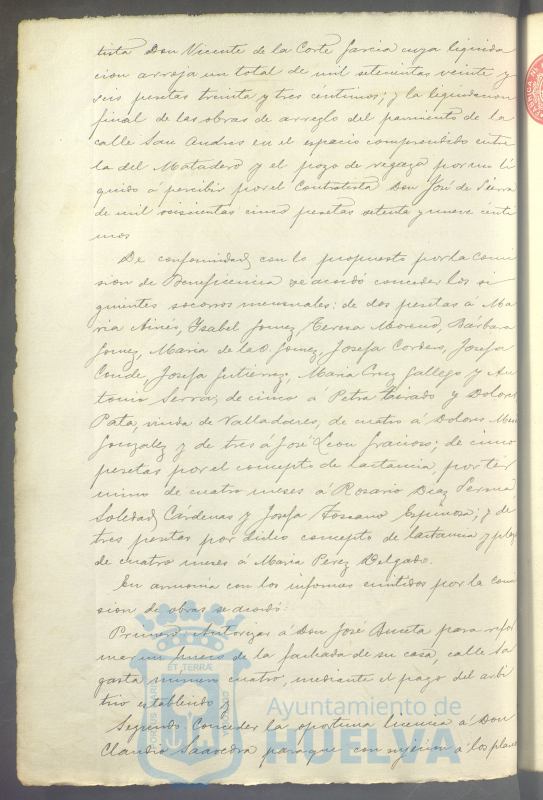 tista Don Vicente de la Corte Garcia cuya liquida
cion arroja un total de mil setecientas veinte y
seis pesetas treinta y tres céntimos; y la liquidacion
final de las obras de arreglo del pavimento de la
calle San Andres en el espacio comprendido entre
la del Matadero y el pozo de por un lí
quido á percibir por el Contratista Don José de Sierra
de mil seiscientas cinco pesetas setenta y nueve cénti
mos
De conformidad con lo propuesto por la Comi
sion de Beneficencia se acordó conceder los si
guientes socorros mensuales: de dos pesetas á Ma
ria Isabel Gomez, Teresa Moreno, Bárbara
Gomez, Maria de la O. Gomez, Josefa Cordero, Josefa
Conde, Josefa Gutierrez, Maria Cruz Gallego y An
tonio Serra; de cinco a Petra y Dolores
Pata, viuda de Valladares, de cuatro á Dolores
Gonzalez y de tres á José Leon Gracioso; de cinco
pesetas por el concepto de lactancia por tér
mino de cuatro meses á Rosario Diaz
Soledad Cárdenas y Josefa Toscano Espinosa; y de
tres pesetas por dicho concepto de lactancia y plazo
de cuatro meses á Maria Perez Delgado.
En armonia con los informes emitidos por la comi
sion de obras se acordó:
Primero: Autorizar á Don José para refor
mar un hueco de la fachada de su casa, calle Sa
gasta número cuatro, mediante el pago del arbi
trio establecido y
Segundo: Conceder la oportuna licencia á Don
Claudio Saavedra para que con sujecion á los plane
ET TERRÆ
Ayuntamiento de
HUELVA